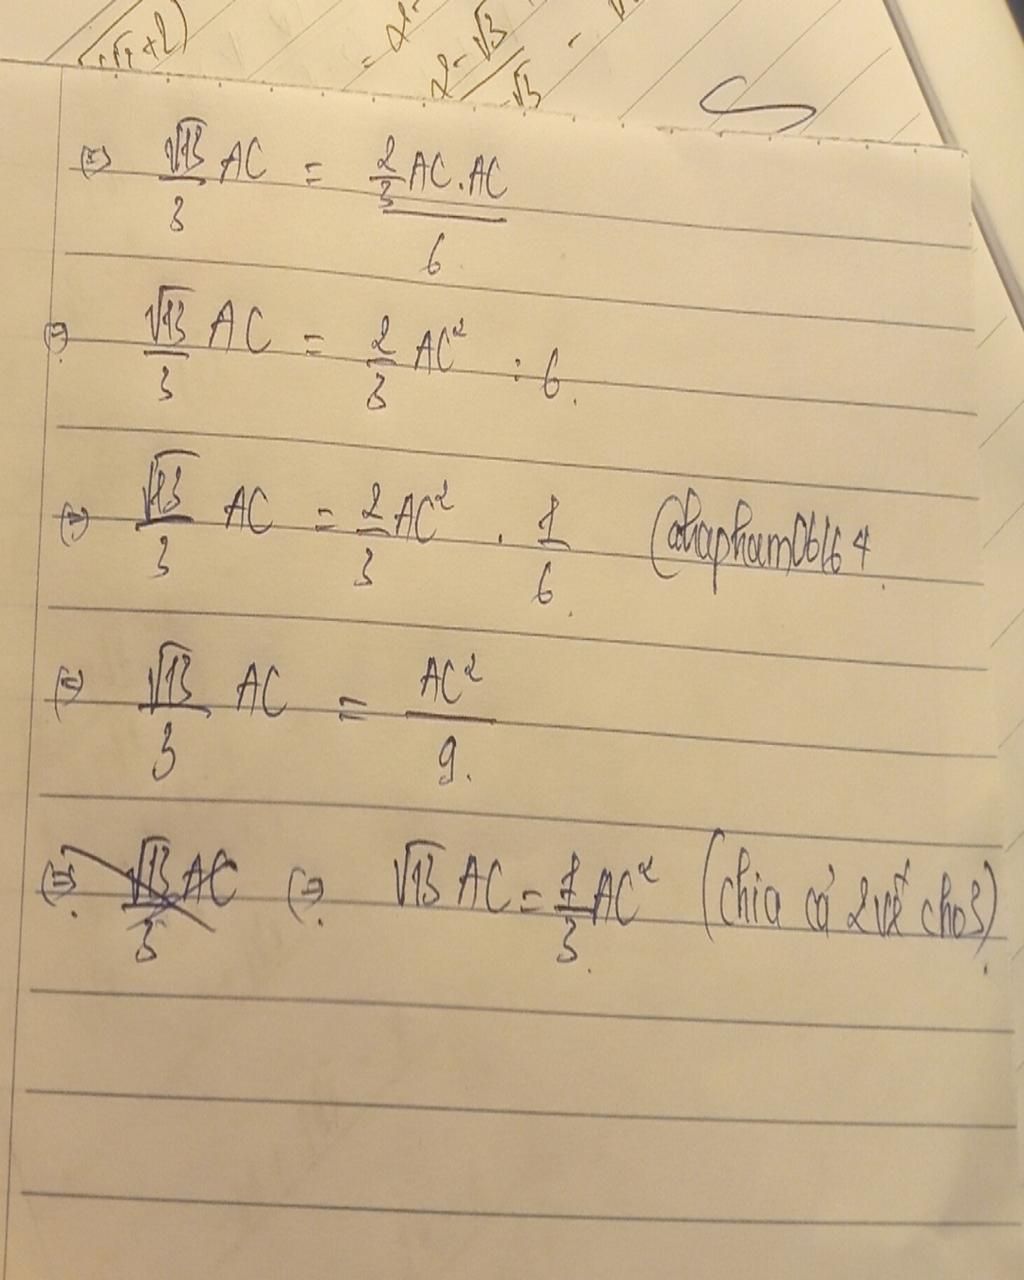 √3+2)
= 2
2-√3
√3
-
(=) √13/3 AC = (2/3 AC.AC)/6
(=) √13/3 AC = 2/3 AC² : 6.
(=) √13/3 AC = 2/3 AC² . 1/6. @hapham06164
(=) √13/3 AC = AC²/9.
(=) √13/3 AC (=) √13 AC = 1/3 AC² (chia cả 2 vế cho 3).